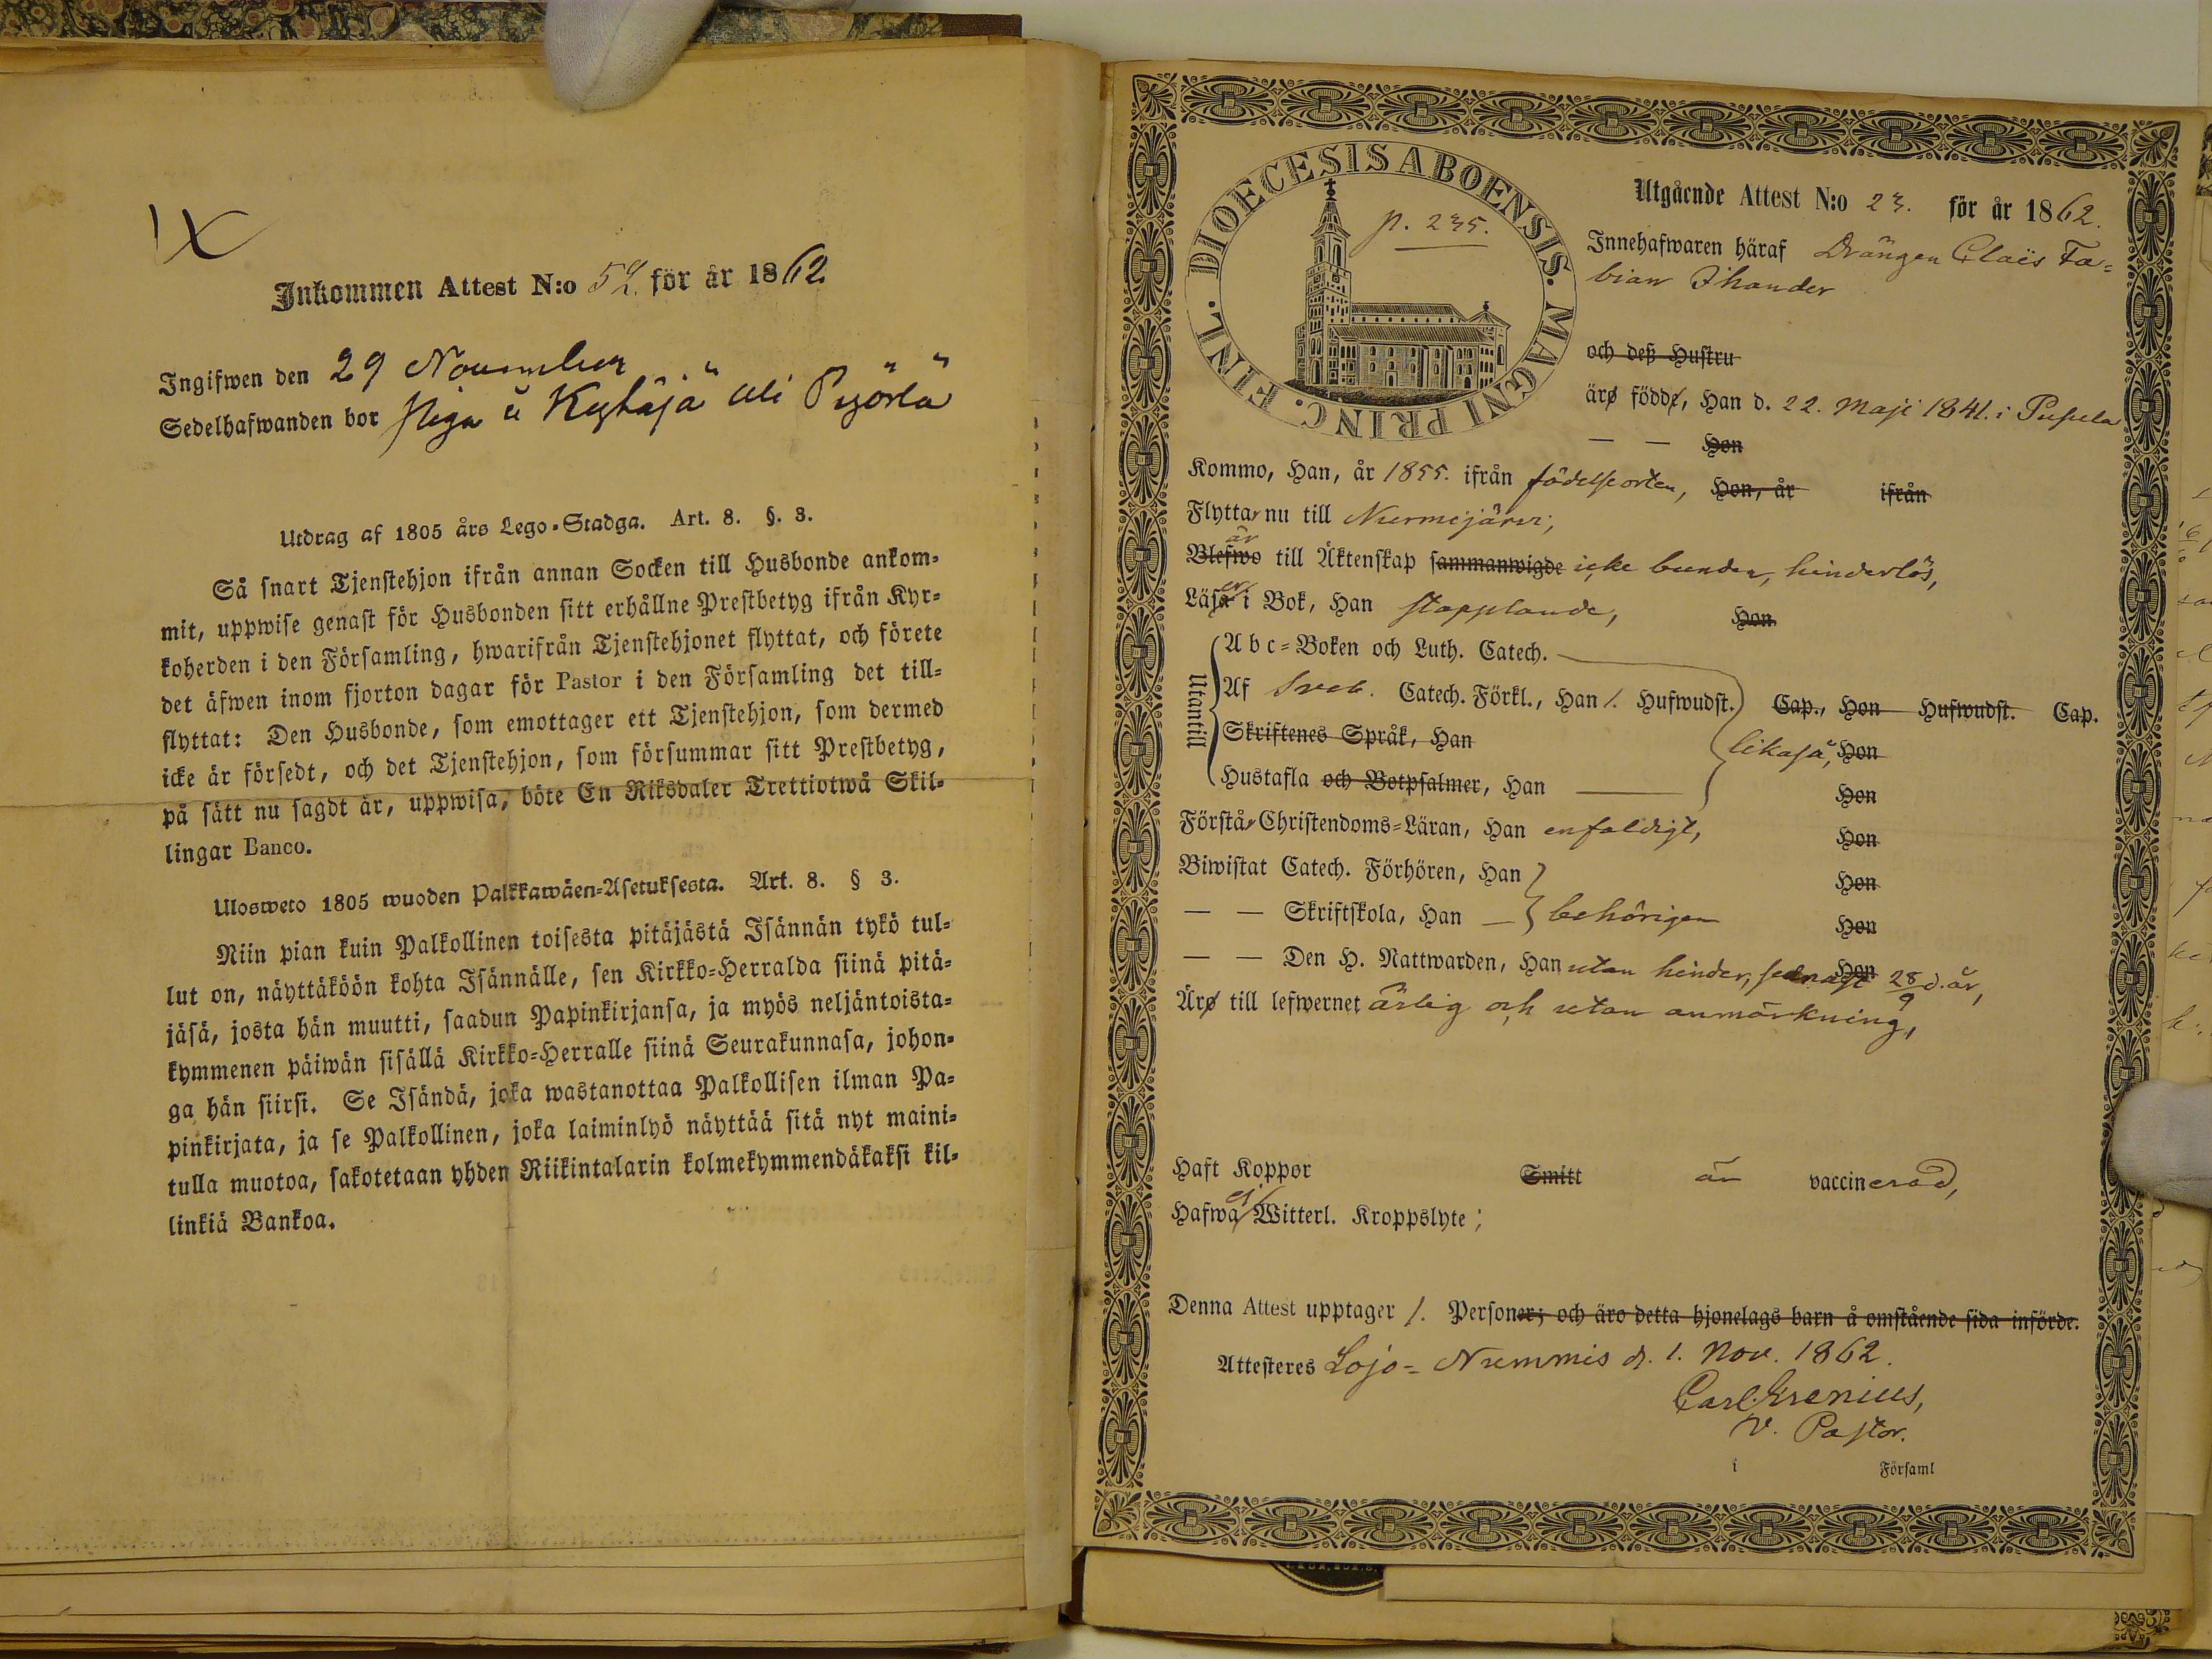 IX
Inkommen Attest N:o 52. för år 1862
Ingifwen den 29 November
Sedelhafwanden bor piga å Kytäjä Ali Pyörlä
Utdrag af 1805 års Lego-Stadga. Art. 8. §. 3.
Så snart Tjenstehjon ifrån annan Socken till Husbonde ankom-
mit, uppwise genast för Husbonden sitt erhållne Prestbetyg ifrån Kyr-
koherden i den Församling, hwarifrån Tjenstehjonet flyttat, och förete
det äfwen inom fjorton dagar för Pastor i den Församling det till-
flyttat: Den Husbonde, som emottager ett Tjenstehjon, som dermed
icke är försedt, och det Tjenstehjon, som försummar sitt Prestbetyg,
på sätt nu sagdt är, uppwisa, böte En Riksdaler Trettiotwå Skil-
lingar Banco.
Ulosweto 1805 wuoden Palkkawäen-Asetuksesta. Art. 8. § 3.
Niin pian kuin Palkollinen toisesta pitäjästä Isännän tykö tul-
lut on, näyttäköön kohta Isännälle, sen Kirkko-Herralda siinä pitä-
jäsä, josta hän muutti, saadun Papinkirjansa, ja myös neljäntoista-
kymmenen päiwän sisällä Kirkko-Herralle siinä Seurakunnasa, johon-
ga hän siirsi. Se Isändä, joka wastanottaa Palkollisen ilman Pa-
pinkirjata, ja se Palkollinen, joka laiminlyö näyttää sitä nyt maini-
tulla muotoa, sakotetaan yhden Riikintalarin kolmekymmendäkaksi kil-
linkiä Bankoa.
FINL. DIOECESIS ABOENSIS. MAGNI PRINC.
p. 235.
Utgående Attest N:o 23. för år 1862.
Innehafwaren häraf Drängen Claës Fa-
bian Ihander
och deß Hustru
äro född, Han d. 22. Maji 1841. i Pusula
— — Hon
Kommo, Han, år 1855. ifrån födelseorten, Hon, år ifrån
Flyttar nu till Nurmijärvi,
är
Blefwo till Äktenskap sammanwigde icke bunden, hinderlös,
Läser i Bok, Han stapplande, Hon
Utantill
Abc-Boken och Luth. Catech.
Af Sveb. Catech. Förkl., Han 1. Hufwudst. Cap., Hon Hufwudst. Cap.
Skriftenes Språk, Han likaså, Hon
Hustafla och Botpsalmer, Han Hon
Förstår Christendoms-Läran, Han enfaldigt, Hon
Biwistat Catech. Förhören, Han Hon
— — Skriftskola, Han — behörigen Hon
— — Den H. Nattwarden, Han utan hinder, sednast Hon 28/9 d. år,
Äro till lefwernet ärlig och utan anmärkning,
Haft Koppor Smitt är vaccinerad,
ej
Hafwa Witterl. Kroppslyte;
Denna Attest upptager 1. Personer; och äro detta hjonelags barn å omstående sida införde.
Attesteres Lojo-Nummis d. 1. Nov. 1862.
Carl Grenius,
V. Pastor.
i Församl